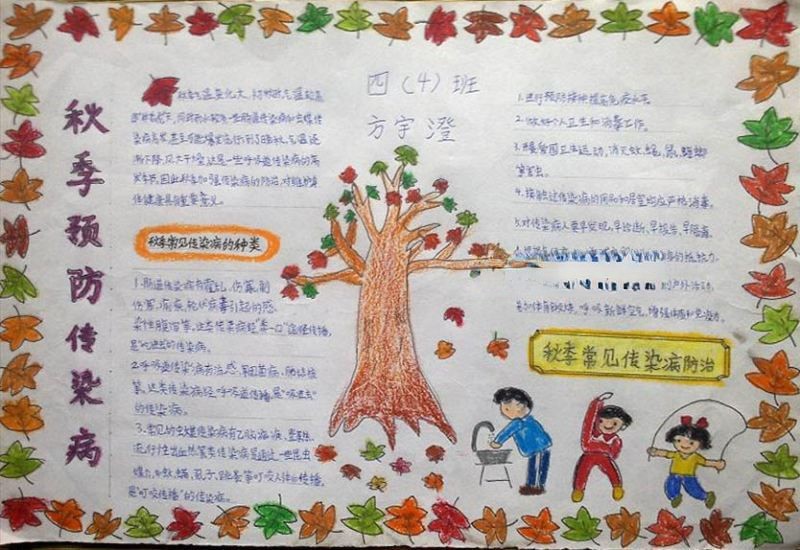 秋季预防传染病
四（4）班
方宇澄
秋季气温变化大，初秋时气温
传染病
渐下降，风大干燥，这是一些呼吸道传染病的高
发季节，因此秋季加强传染病的防治，对维护身
体健康具有重要意义。
秋季常见传染病的种类
1.肠道传染病有霍乱、伤寒、副
伤寒、痢疾、轮状病毒引起的感
染性腹泻等，这类传染病经
是吃进去的传染病。
2.呼吸道传染病有流感、肺结核
等，这类传染病经呼吸道传播，是“吸进去”
的传染病。
3.常见的虫媒传染病有乙脑、疟疾、登革热、
流行性出血热等，这类传染病是通过一些昆虫
媒介，如蚊、螨、虱子、跳蚤等叮咬人体后传播，
是“叮咬传播”的传染病。
1.进行预防接种提高免疫水平。
2.做好个人卫生和消毒工作。
3.开展爱国卫生运动，消灭蚊、蝇、鼠、蟑螂
等害虫。
4.接触过传染病的用品和居室均应严格消毒。
5.对传染病人要早发现，早诊断，早报告，早隔离。
的抵抗力
户外活动，
参加体育锻炼，呼吸新鲜空气，增强体质和免疫力。
秋季常见传染病防治